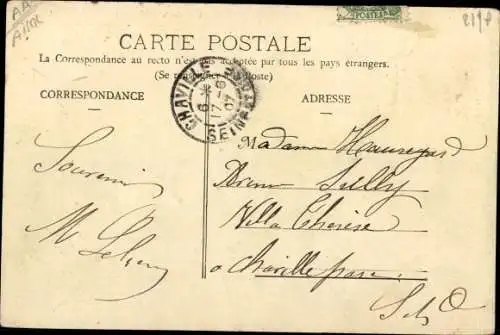 CARTE POSTALE
La Correspondance au recto n'est pas acceptée par tous les pays étrangers.
(Se renseigner à la Poste)
CORRESPONDANCE
ADRESSE
CHAVILLE
6
17-6
07
SEINE-ET-OISE
POSTES
Souvenir
Madame
Avenue Sully
Villa Thérèse
a Chaville
S et O